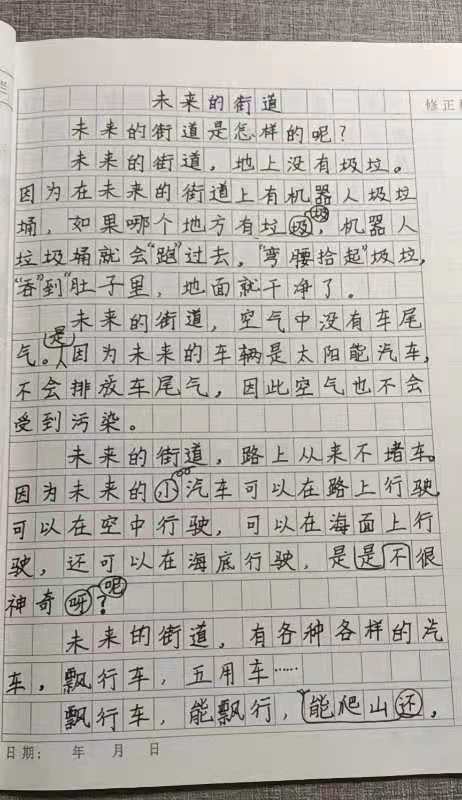 未来的街道
修正
未来的街道是怎样的呢?
未来的街道，地上没有圾垃。
因为在未来的街道上有机器人圾垃
桶，如果哪个地方有垃圾圾，机器人
垃圾桶就会“跑”过去，“弯腰拾起”圾垃，
“吞”到“肚子里，地面就干净了。
未来的街道，空气中没有车尾
气。是因为未来的车辆是太阳能汽车，
不会排放车尾气，因此空气也不会
受到污染。
未来的街道，路上从来不堵车。
因为未来的小汽车可以在路上行驶
可以在空中行驶，可以在海面上行
驶，还可以在海底行驶，是是不很
神奇呀呢?
未来的街道，有各种各样的汽
车，飘行车，五用车……
飘行车，能飘行，能爬山还，
日期： 年 月 日